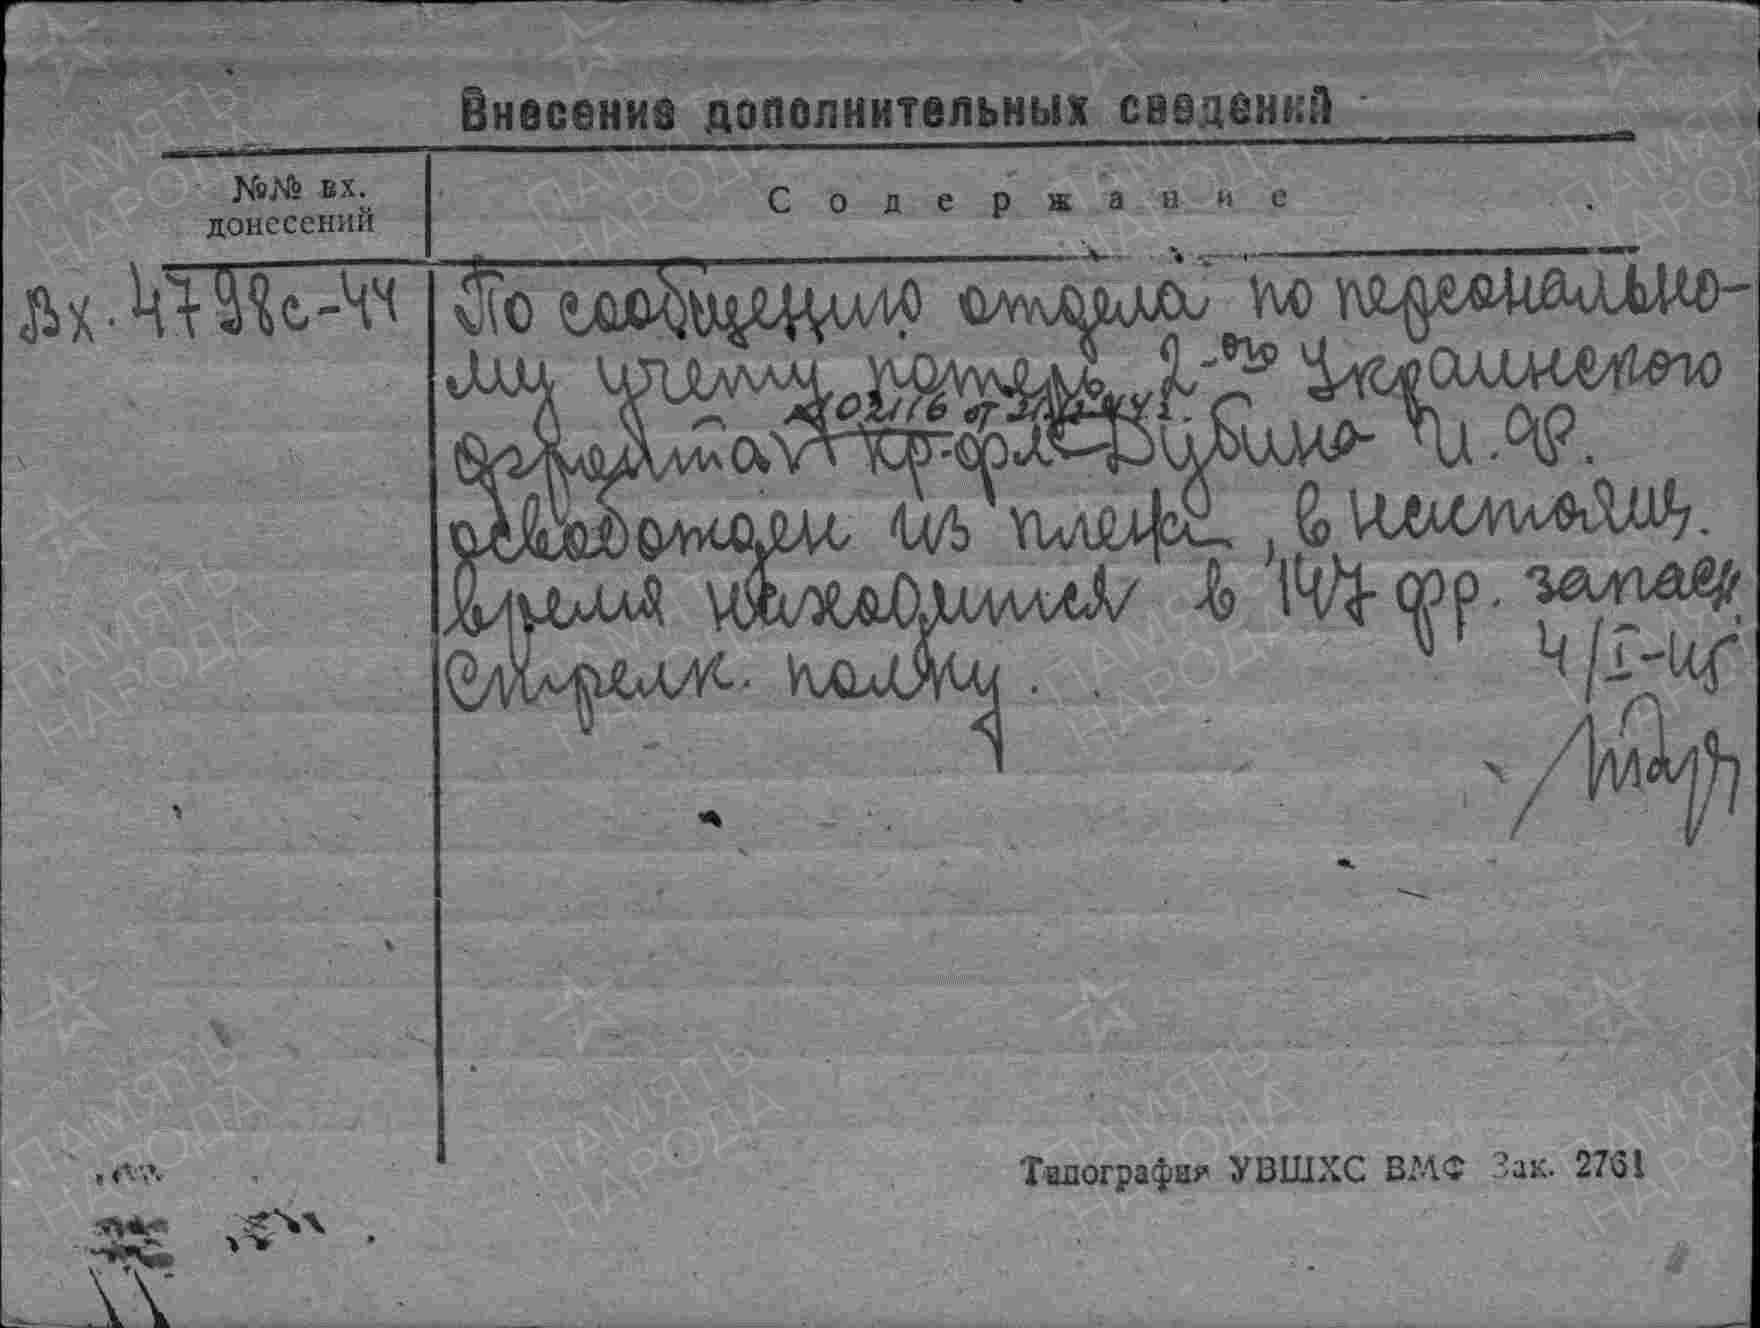 Внесение дополнительных сведений
№№ вх.
донесений
Содержание
Вх. 4798с-44
По сообщению отдела по персонально-
му учету потерь 2-ого Украинского
№ 02116 от
фронта кр-фл Дубино И.Ф.
освобожден из плена, в настоящ.
время находится в 147 фр. запасн.
Стрелк. полку.
4/I-45
Типография УВШХС ВМФ Зак. 2761
ПАМЯТЬ
НАРОДА